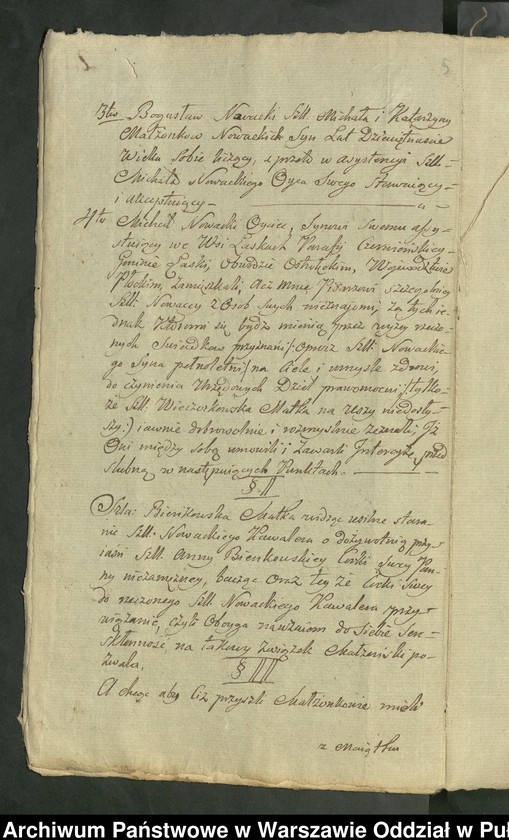 5
3tio Bogusław Nowacki Szl. Michała i Katarzyny
Małżonków Nowackich Syn Lat Dziewiętnaście
Wieku Sobie liczący, a przeto w assystencyi Szl:
Michała Nowackiego Oyca Swego Stawaiący
i akceptuiący
4to Michał Nowacki Oyciec, Synowi Swemu assy-
stuiący we Wsi Laskach Parafij
Gminie Laski, Obwodzie Ostrołęckim, Woiewództwie
Płockim, Zamieszkali, Acz mnie Pisarzowi
Szl: Nowaccy z Osob swych nieznajomi, za tych ie-
dnak któremi się bydź mienią przez wyżey rzeczo-
nych Świadków przyznani /: oprócz Szl: Nowackie-
go Syna pełnoletni/ na ciele i umyśle zdrowi,
do czynienia Urzędowych Dzieł prawomocni, /: tylko
że Szl: Matka na uszy niedosły-
szy :/ iawnie dobrowolnie i rozmyślnie zeznali, Iż
Oni między sobą umówili i zawarli Intercyzę przed
ślubną w następuiących Punktach.
§ II
Szla: Bienkowska Matka widząc usilne stara-
nie Szl: Nowackiego Kawalera o dożywotnią przy-
iaźń Szl: Anny Bienkowskiey Córki Swey Pan-
ny niezamężney, bacząc oraz tey że Córki Swey
do rzeczonego Szl: Nowackiego Kawalera przy-
wiązanie, czyli Oboyga nawzaiem do Siebie
Skłonność, na takowy związek Małżeński po-
zwala.
§ III
A chcąc aby Ciż przyszli Małżonkowie mieli